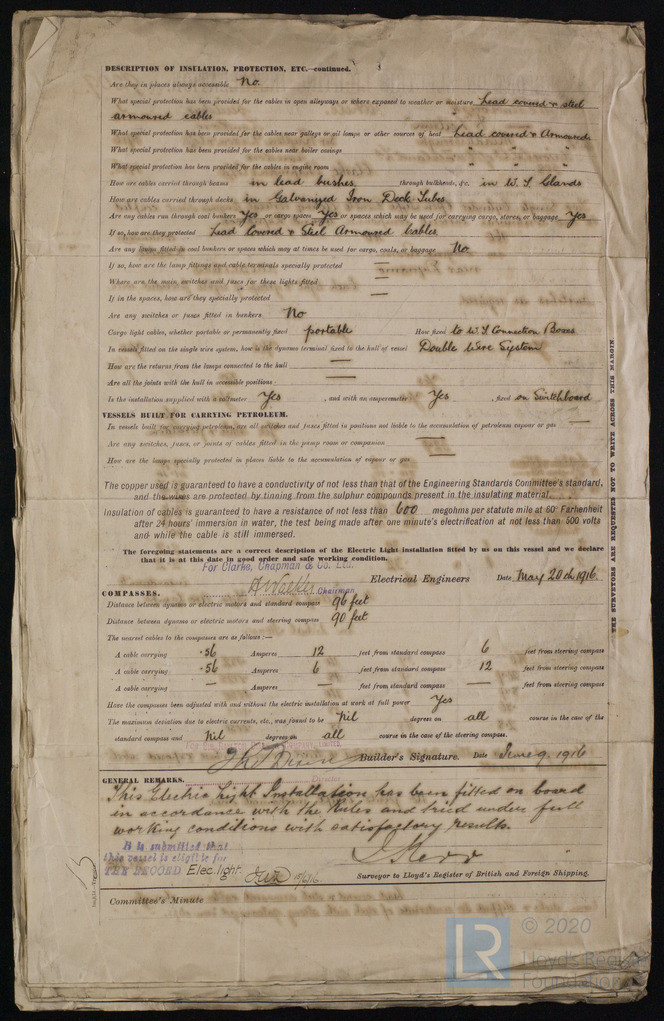 DESCRIPTION OF INSULATION, PROTECTION, ETC.—continued.
Are they in places always accessible No.
What special protection has been provided for the cables in open alleyways or where exposed to weather or moisture Lead covered & steel
armoured cables
What special protection has been provided for the cables near galleys or oil lamps or other sources of heat Lead covered & Armoured
What special protection has been provided for the cables near boiler casings " " "
What special protection has been provided for the cables in engine room " " "
How are cables carried through beams in lead bushes through bulkheads, &c. in W.T. Glands
How are cables carried through decks in Galvanized Iron Deck Tubes
Are any cables run through coal bunkers Yes or cargo spaces Yes or spaces which may be used for carrying cargo, stores, or baggage Yes
If so, how are they protected Lead Covered & Steel Armoured Cables.
Are any lamps fitted in coal bunkers or spaces which may at times be used for cargo, coals, or baggage No.
If so, how are the lamp fittings and cable terminals specially protected —
Where are the main switches and fuses for these lights fitted —
If in the spaces, how are they specially protected —
Are any switches or fuses fitted in bunkers No
Cargo light cables, whether portable or permanently fixed portable How fixed to W.T. Connection Boxes
In vessels fitted on the single wire system, how is the dynamo terminal fixed to the hull of vessel Double Wire System
How are the returns from the lamps connected to the hull —
Are all the joints with the hull in accessible positions —
Is the installation supplied with a voltmeter Yes, and with an amperemeter Yes, fixed on Switchboard
VESSELS BUILT FOR CARRYING PETROLEUM.
In vessels built for carrying petroleum, are all switches and fuses fitted in positions not liable to the accumulation of petroleum vapour or gas —
Are any switches, fuses, or joints of cables fitted in the pump room or companion —
How are the lamps specially protected in places liable to the accumulation of vapour or gas —
The copper used is guaranteed to have a conductivity of not less than that of the Engineering Standards Committee's standard,
and the wires are protected by tinning from the sulphur compounds present in the insulating material.
Insulation of cables is guaranteed to have a resistance of not less than 600 megohms per statute mile at 60° Farhenheit
after 24 hours' immersion in water, the test being made after one minute's electrification at not less than 500 volts
and while the cable is still immersed.
The foregoing statements are a correct description of the Electric Light installation fitted by us on this vessel and we declare
that it is at this date in good order and safe working condition.
For Clarke, Chapman & Co. Ltd.
Chairman Electrical Engineers Date May 20th 1916.
COMPASSES.
Distance between dynamo or electric motors and standard compass 96 feet
Distance between dynamo or electric motors and steering compass 90 feet
The nearest cables to the compasses are as follows:—
A cable carrying .56 Amperes 12 feet from standard compass 6 feet from steering compass
A cable carrying .56 Amperes 6 feet from standard compass 12 feet from steering compass
A cable carrying — Amperes — feet from standard compass — feet from steering compass
Have the compasses been adjusted with and without the electric installation at work at full power Yes
The maximum deviation due to electric currents, etc., was found to be nil degrees on all course in the case of the
standard compass and nil degrees on all course in the case of the steering compass.
Builder's Signature. Date June 9. 1916
GENERAL REMARKS.
This Electric Light Installation has been fitted on board
in accordance with the Rules and tried under full
working conditions with satisfactory results.
It is submitted that
this vessel is eligible for
THE RECORD Elec. light. 15/6/16
Surveyor to Lloyd's Register of British and Foreign Shipping.
Committee's Minute
THE SURVEYORS ARE REQUESTED NOT TO WRITE ACROSS THIS MARGIN.
LR
© 2020
Lloyd's Register
Foundation